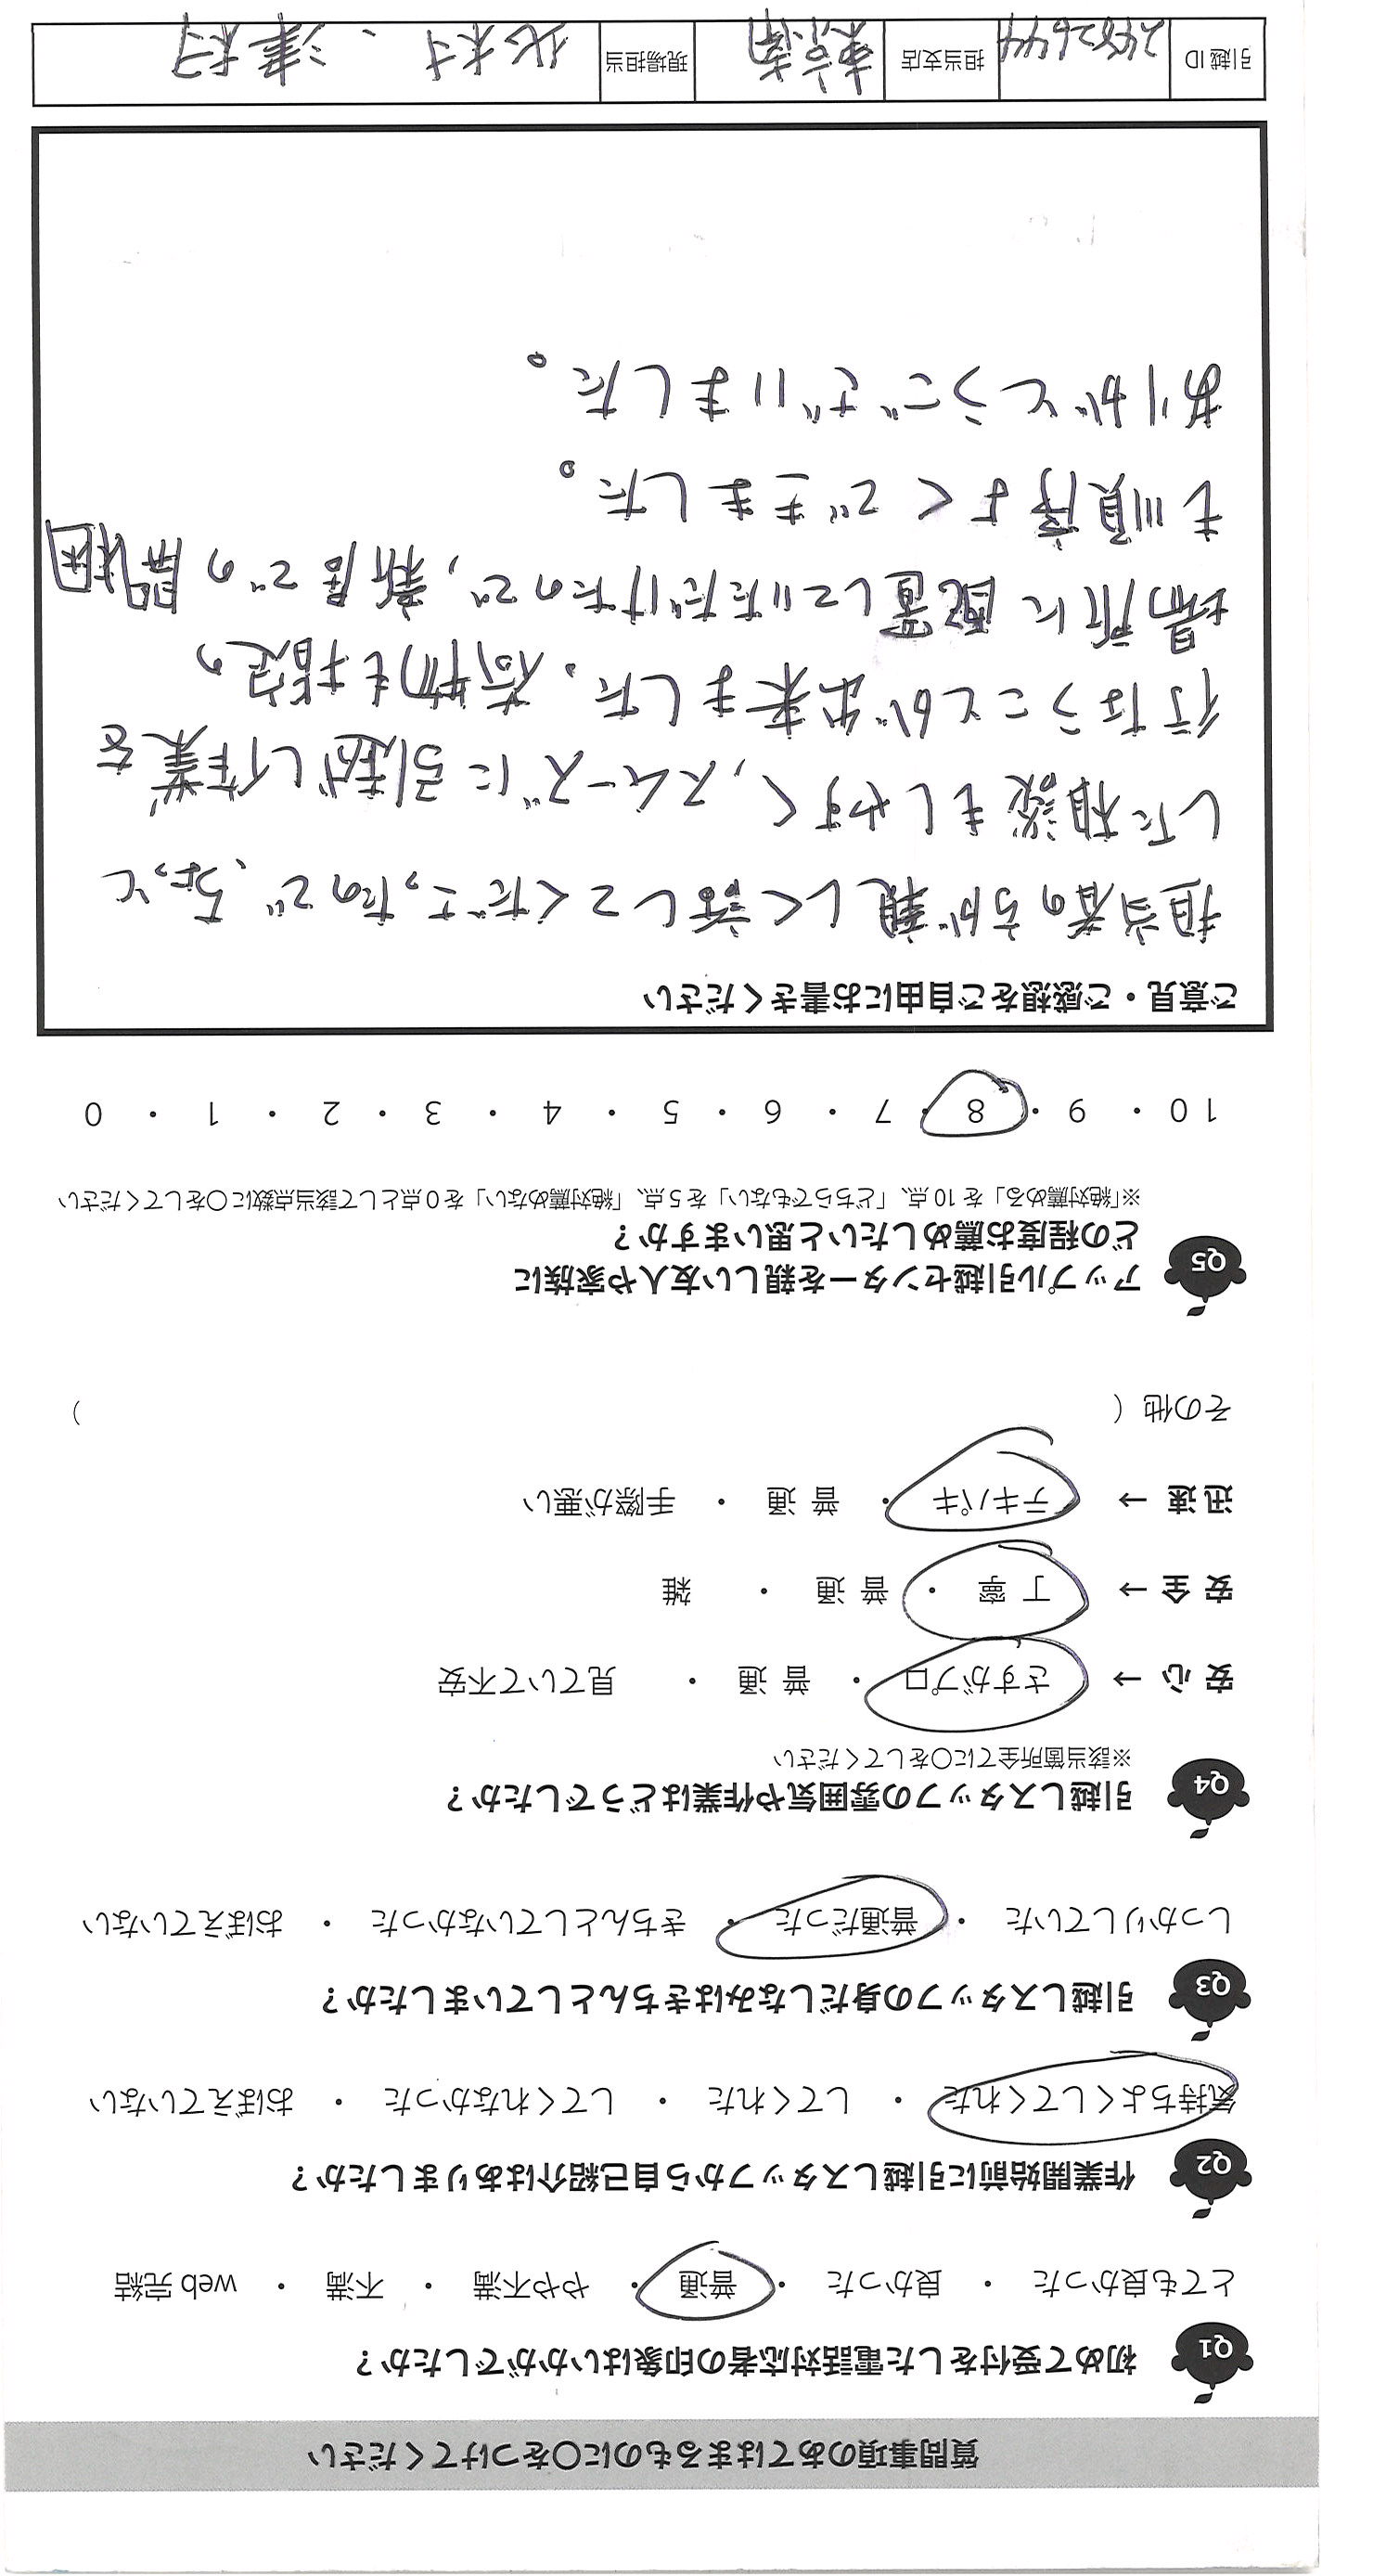 質問事項のあてはまるものに〇をつけてください
Q1 初めて受付をした電話対応者の印象はいかがでしたか？
とても良かった ・ 良かった ・ 普通 ・ やや不満 ・ 不満 ・ web 完結
Q2 作業開始前に引越しスタッフから自己紹介はありましたか？
気持ちよくしてくれた ・ してくれた ・ してくれなかった ・ おぼえていない
Q3 引越しスタッフの身だしなみはきちんとしていましたか？
しっかりしていた ・ 普通だった ・ きちんとしていなかった ・ おぼえていない
Q4 引越しスタッフの雰囲気や作業はどうでしたか？
※該当箇所全てに〇をしてください
安 心 → さすがプロ ・ 普 通 ・ 見ていて不安
安 全 → 丁 寧 ・ 普 通 ・ 雑
迅 速 → テキパキ ・ 普 通 ・ 手際が悪い
その他（ ）
Q5 アップル引越センターを親しい友人や家族に
どの程度お薦めしたいと思いますか？
※「絶対薦める」を 10 点、「どちらでもない」を 5 点、「絶対薦めない」を 0 点として該当点数に〇をしてください
10 ・ 9 ・ 8 ・ 7 ・ 6 ・ 5 ・ 4 ・ 3 ・ 2 ・ 1 ・ 0
ご意見・ご感想をご自由にお書きください
担当者の方が親しく話してくださったので、ちょっと
した相談もしやすく、スムーズに引越し作業を
行なうことが出来ました。荷物も指定の
場所に配置していただけたので、新居での開梱
も順序よくできました。
ありがとうございました。
引越 ID 2482644 担当支店 東京南 現場担当 北村、津村